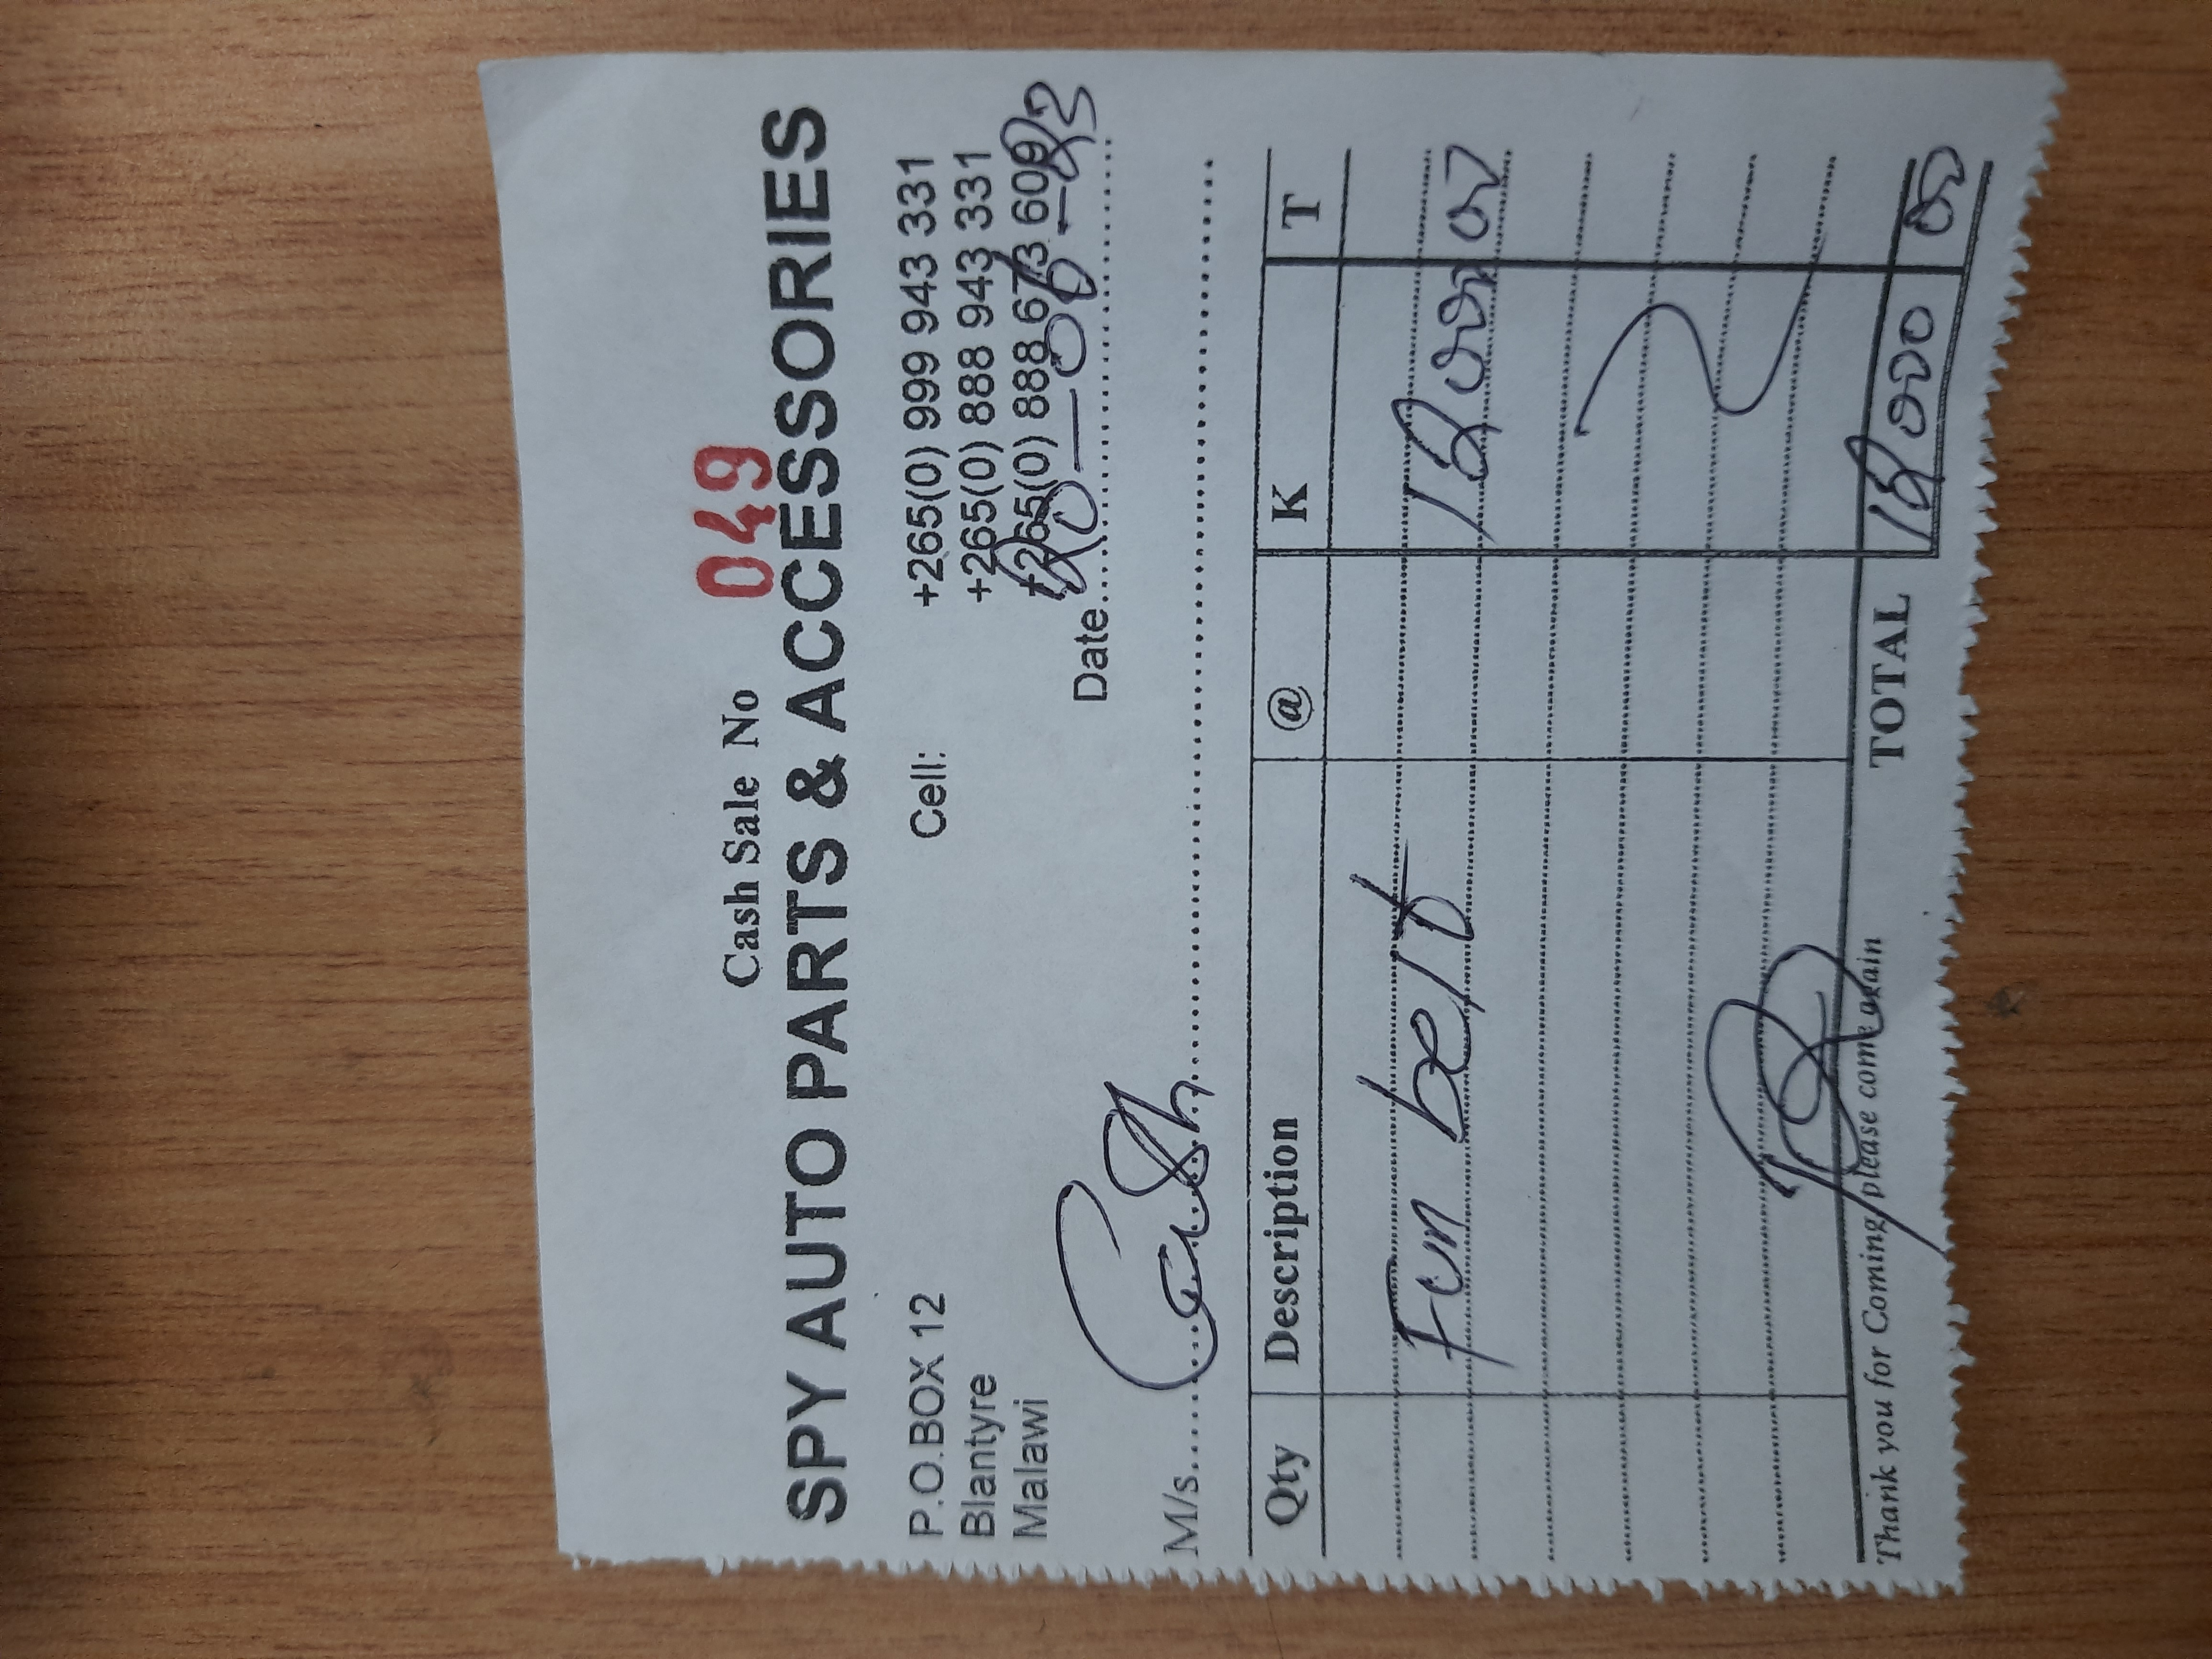 Cash Sale No 049
SPY AUTO PARTS & ACCESSORIES
P.O.BOX 12 Cell: +265(0) 999 943 331
Blantyre +265(0) 888 943 331
Malawi +265(0) 888 673 609
Date 20-06-23
M/s Cash
Qty Description @ K T
Fun belt 12000 00
Thank you for Coming, please come again TOTAL 12000 00